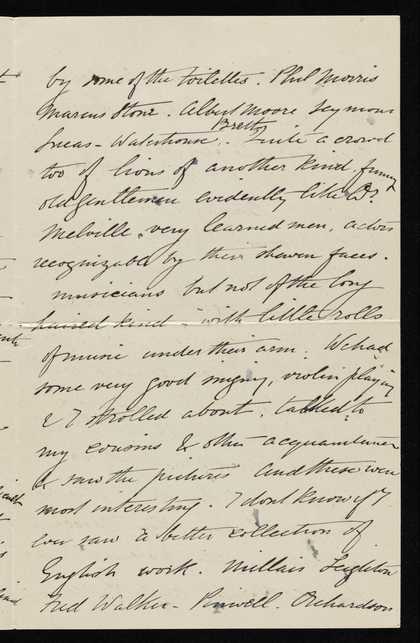 by some of the toilettes. Phil Morris
Marcus Stone. Albert Moore Seymour
Lucas - Waterhouse. Brett. Quite a crowd
too of lions of another kind, funny
old gentlemen evidently like Dr.
Melville, very learned men, actors
recognizable by their shaven faces.
musicians but not of the long
haired kind - with little rolls
of music under their arm. We had
some very good singing, violin playing
& I strolled about, talked to
my cousins & other acquaintances
& saw the pictures and these were
most interesting. I dont know if I
ever saw a better collection of
English work. Millais Leighton
Fred Walker - Pinwell. Orchardson